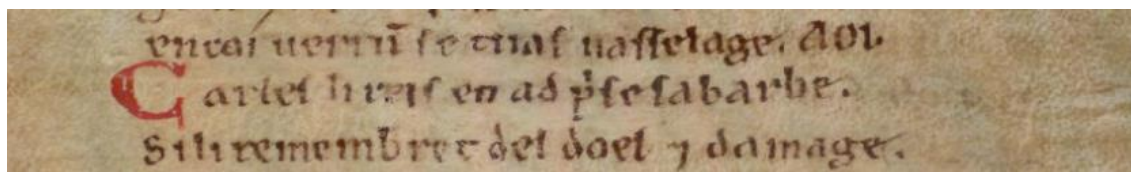 encoi uerrũ se tu as uasselage. AOI.
Carles li reis en ad p̃se sa barbe.
Si li remembret del doel ⁊ damage.